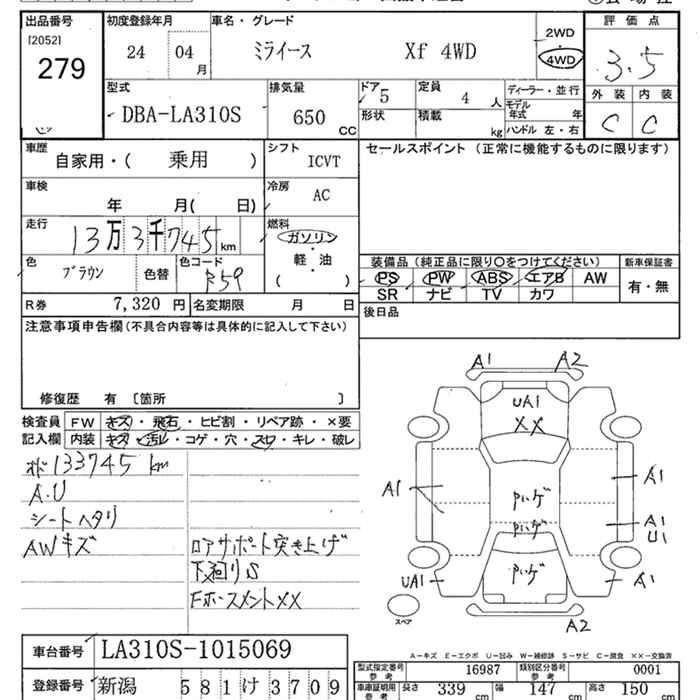 出品番号 初度登録年月 車名・グレード 評価点
[2052]
279
24 04 月 ミライース Xf 4WD 2WD 4WD 3.5
外装 内装
C C
型式 排気量 ドア 定員 ディーラー・並行
DBA-LA310S 650 CC 5 4 人
形状 積載 kg モデル年式 年
ハンドル 左・右
車歴 自家用・( 乗用 ) シフト ICVT セールスポイント (正常に機能するものに限ります)
車検 年 月( 日) 冷房 AC
走行 13万3千745 km 燃料 ガソリン
軽・油
( ・ )
色 ブラウン 色替 色コード R59
装備品 (純正品に限り○をつけてください) 新車保証書
PS PW ABS エアB AW 有・無
SR ナビ TV カワ
R券 7,320 円 名変期限 月 日 後日品
注意事項申告欄 (不具合内容等は具体的に記入して下さい)
修復歴 有 〔箇所 〕
検査員 FW キズ・飛石・ヒビ割・リペア跡・×要
記入欄 内装 キズ・汚レ・コゲ・穴・スレ・キレ・破レ
133745 km
A.U
シートヘタリ
AWキズ
ロアサポート突き上げ
下廻りS
FホースメントXX
A1 A2
UA1
XX
A1
A1
A1
U1
UA1
A1
A2
スペア
A-キズ E-エクボ U-凹み W-補修跡 S-サビ C-腐食 ××-交換済
車台番号 LA310S-1015069
登録番号 新潟 581 け 3709
型式指定番号 参考 16987 類別区分番号 参考 0001
車庫証明用 参考 長さ 339 cm 幅 147 cm 高さ 150 cm